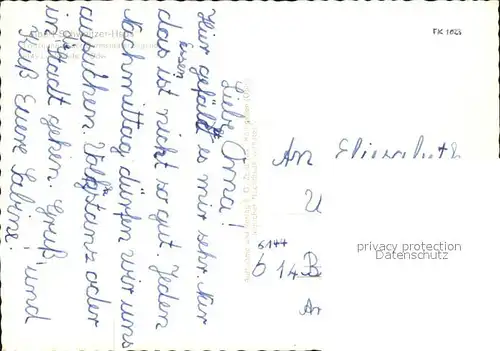 Liebe Oma!
Hier gefällt es mir sehr. Nur
das Essen ist nicht so gut. Jeden
Nachmittag dürfen wir uns
aussuchen Volkstanz oder
in d. Stadt gehen. Gruß und
Kuß Euere Sabine!
FK 1623
An Elisabeth
6144
614
An
privacy protection
Datenschutz